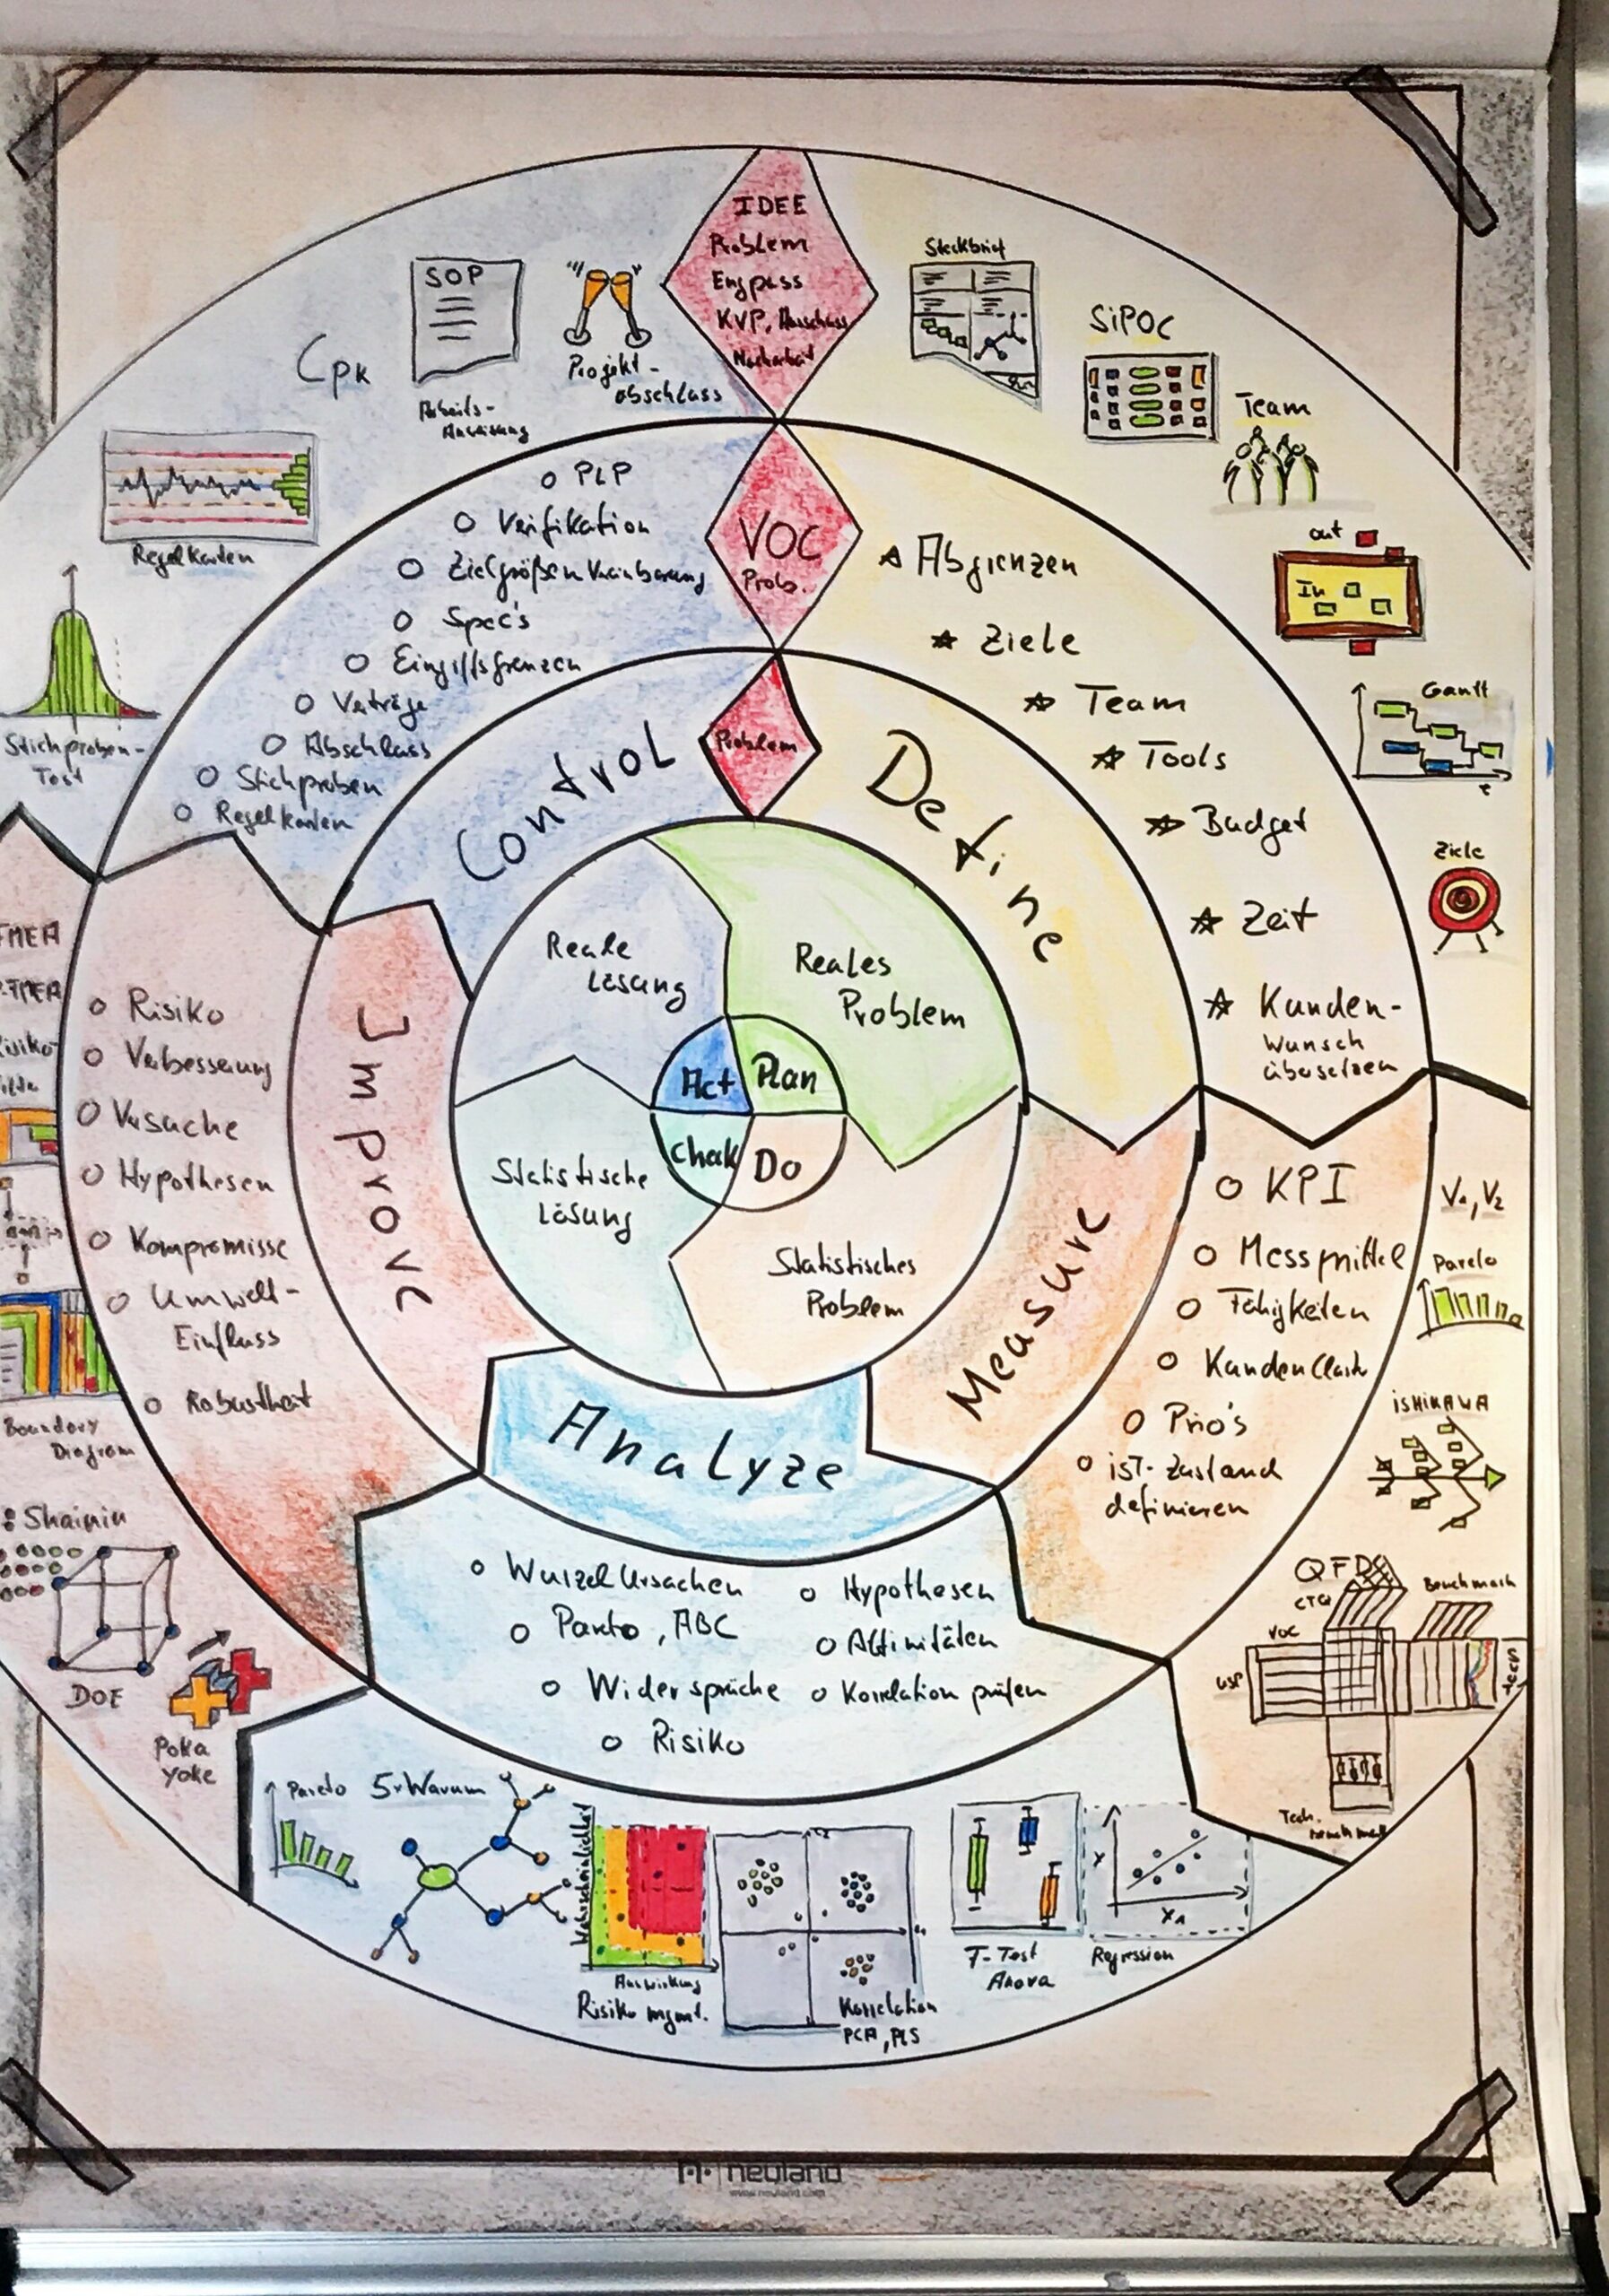 IDEE
Problem
Engpass
KVP, Ausschuss
Nacharbeit
VOC
Prob.
Problem
Steckbrief
SiPOC
Team
out
In
Gantt
t
Ziele
Define
Abgrenzen
Ziele
Team
Tools
Budget
Zeit
Kunden-
wunsch
übersetzen
Measure
KPI
Messmittel
Fähigkeiten
Prio's
iST-Zustand
definieren
V1, V2
Pareto
iSHIKAWA
QFD
CTQ
Benchmark
VOC
USP
Tech.
Analyze
Wurzel Ursachen
Pareto, ABC
Widersprüche
Risiko
Hypothesen
Affinitäten
Korrelation prüfen
Pareto
5xWarum
Wahrscheinlichkeit
Auswirkung
Risiko mgmt.
Korrelation
PCA, PLS
T-Test
Anova
Y
X1
Regression
Improve
Risiko
Verbesserung
Versuche
Hypothesen
Kompromisse
Umwelt-
Einfluss
Robustheit
FMEA
Boundary
Diagram
Shainin
DOE
Poka
Yoke
Control
PLP
Verifikation
Zielgrößen Vereinbarung
Spec's
Eingriffsgrenzen
Verträge
Abschluss
Stichproben
Regelkarten
Cpk
SOP
Arbeits-
Anweisung
Projekt-
abschluss
Regelkarten
Stichproben-
Test
Reale
Lösung
Reales
Problem
Statistische
Lösung
Statistisches
Problem
Act
Plan
Chek
Do
neuland
www.neuland.com